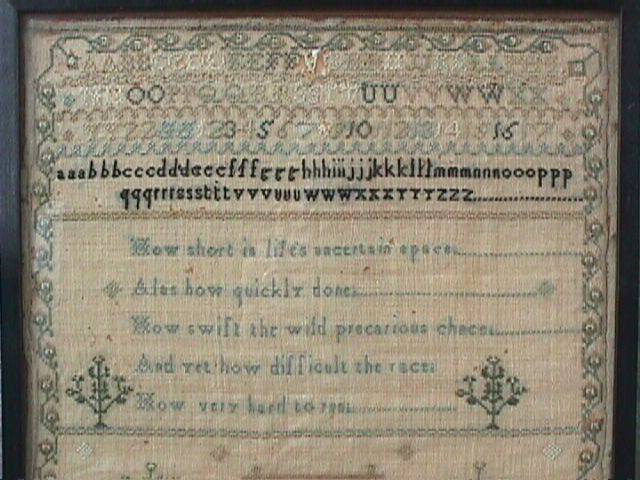 AABBCC EEFF
OO UU VV WW XX
aaabbbcccdddeeefffggghhhiiijjjkkklllmmmnnnoooppp
qqqrrrssstttvvvuuuwwwxxxyyyzzz
How short is life's uncertain space
Alas how quickly done
How swift the wild precarious chace
And yet how difficult the race
How very hard to run